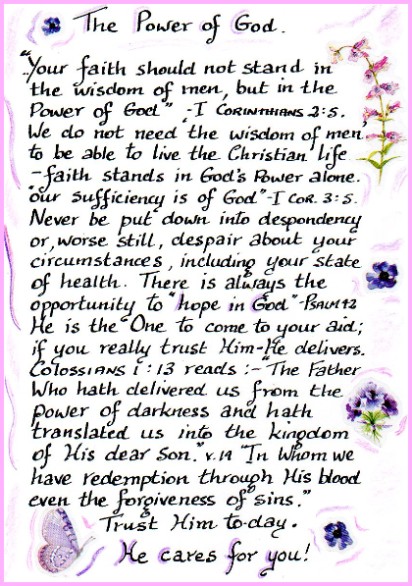 The Power of God.
"Your faith should not stand in
the wisdom of men, but in the
Power of God" -I Corinthians 2:5.
We do not need the wisdom of men
to be able to live the Christian life
-faith stands in God's Power alone.
"our sufficiency is of God"-I Cor. 3:5.
Never be put down into despondency
or, worse still, despair about your
circumstances, including your state
of health. There is always the
opportunity to "hope in God"-Psalm 42
He is the One to come to your aid;
if you really trust Him-He delivers.
Colossians 1:13 reads :-"The Father
Who hath delivered us from the
power of darkness and hath
translated us into the kingdom
of His dear Son." v.14 "In Whom we
have redemption through His blood
even the forgiveness of sins."
Trust Him to-day.
He cares for you!